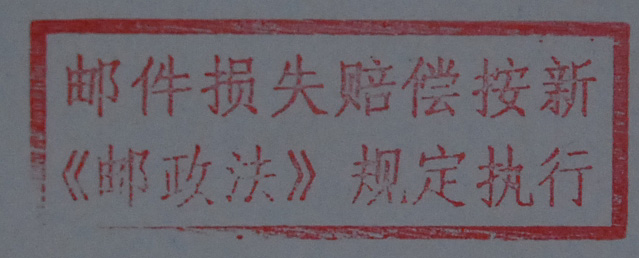 邮件损失赔偿按新
《邮政法》规定执行